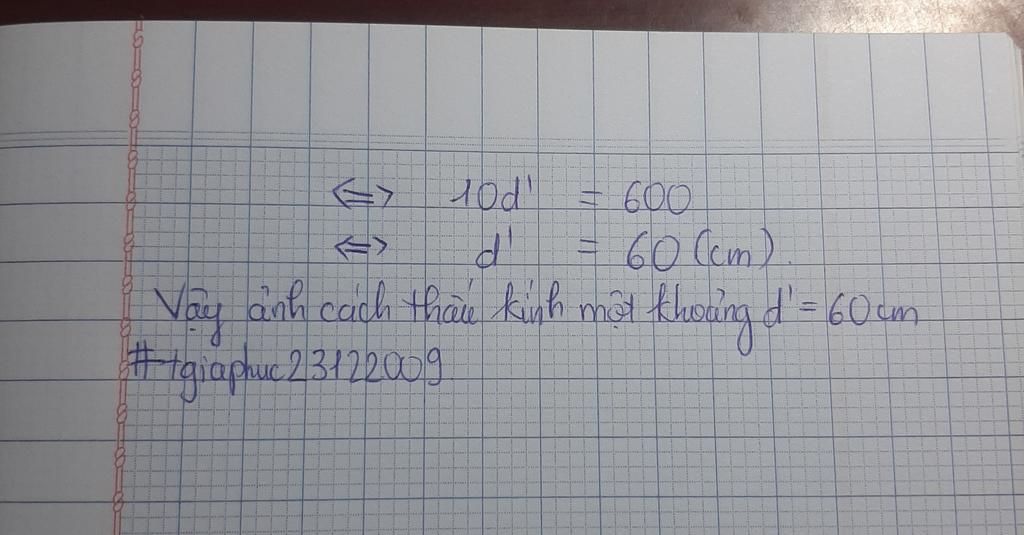 ⇔ 10d' = 600
⇔ d' = 60 (cm).
Vậy ảnh cách thấu kính một khoảng d' = 60cm
#tgiaphuc23122009